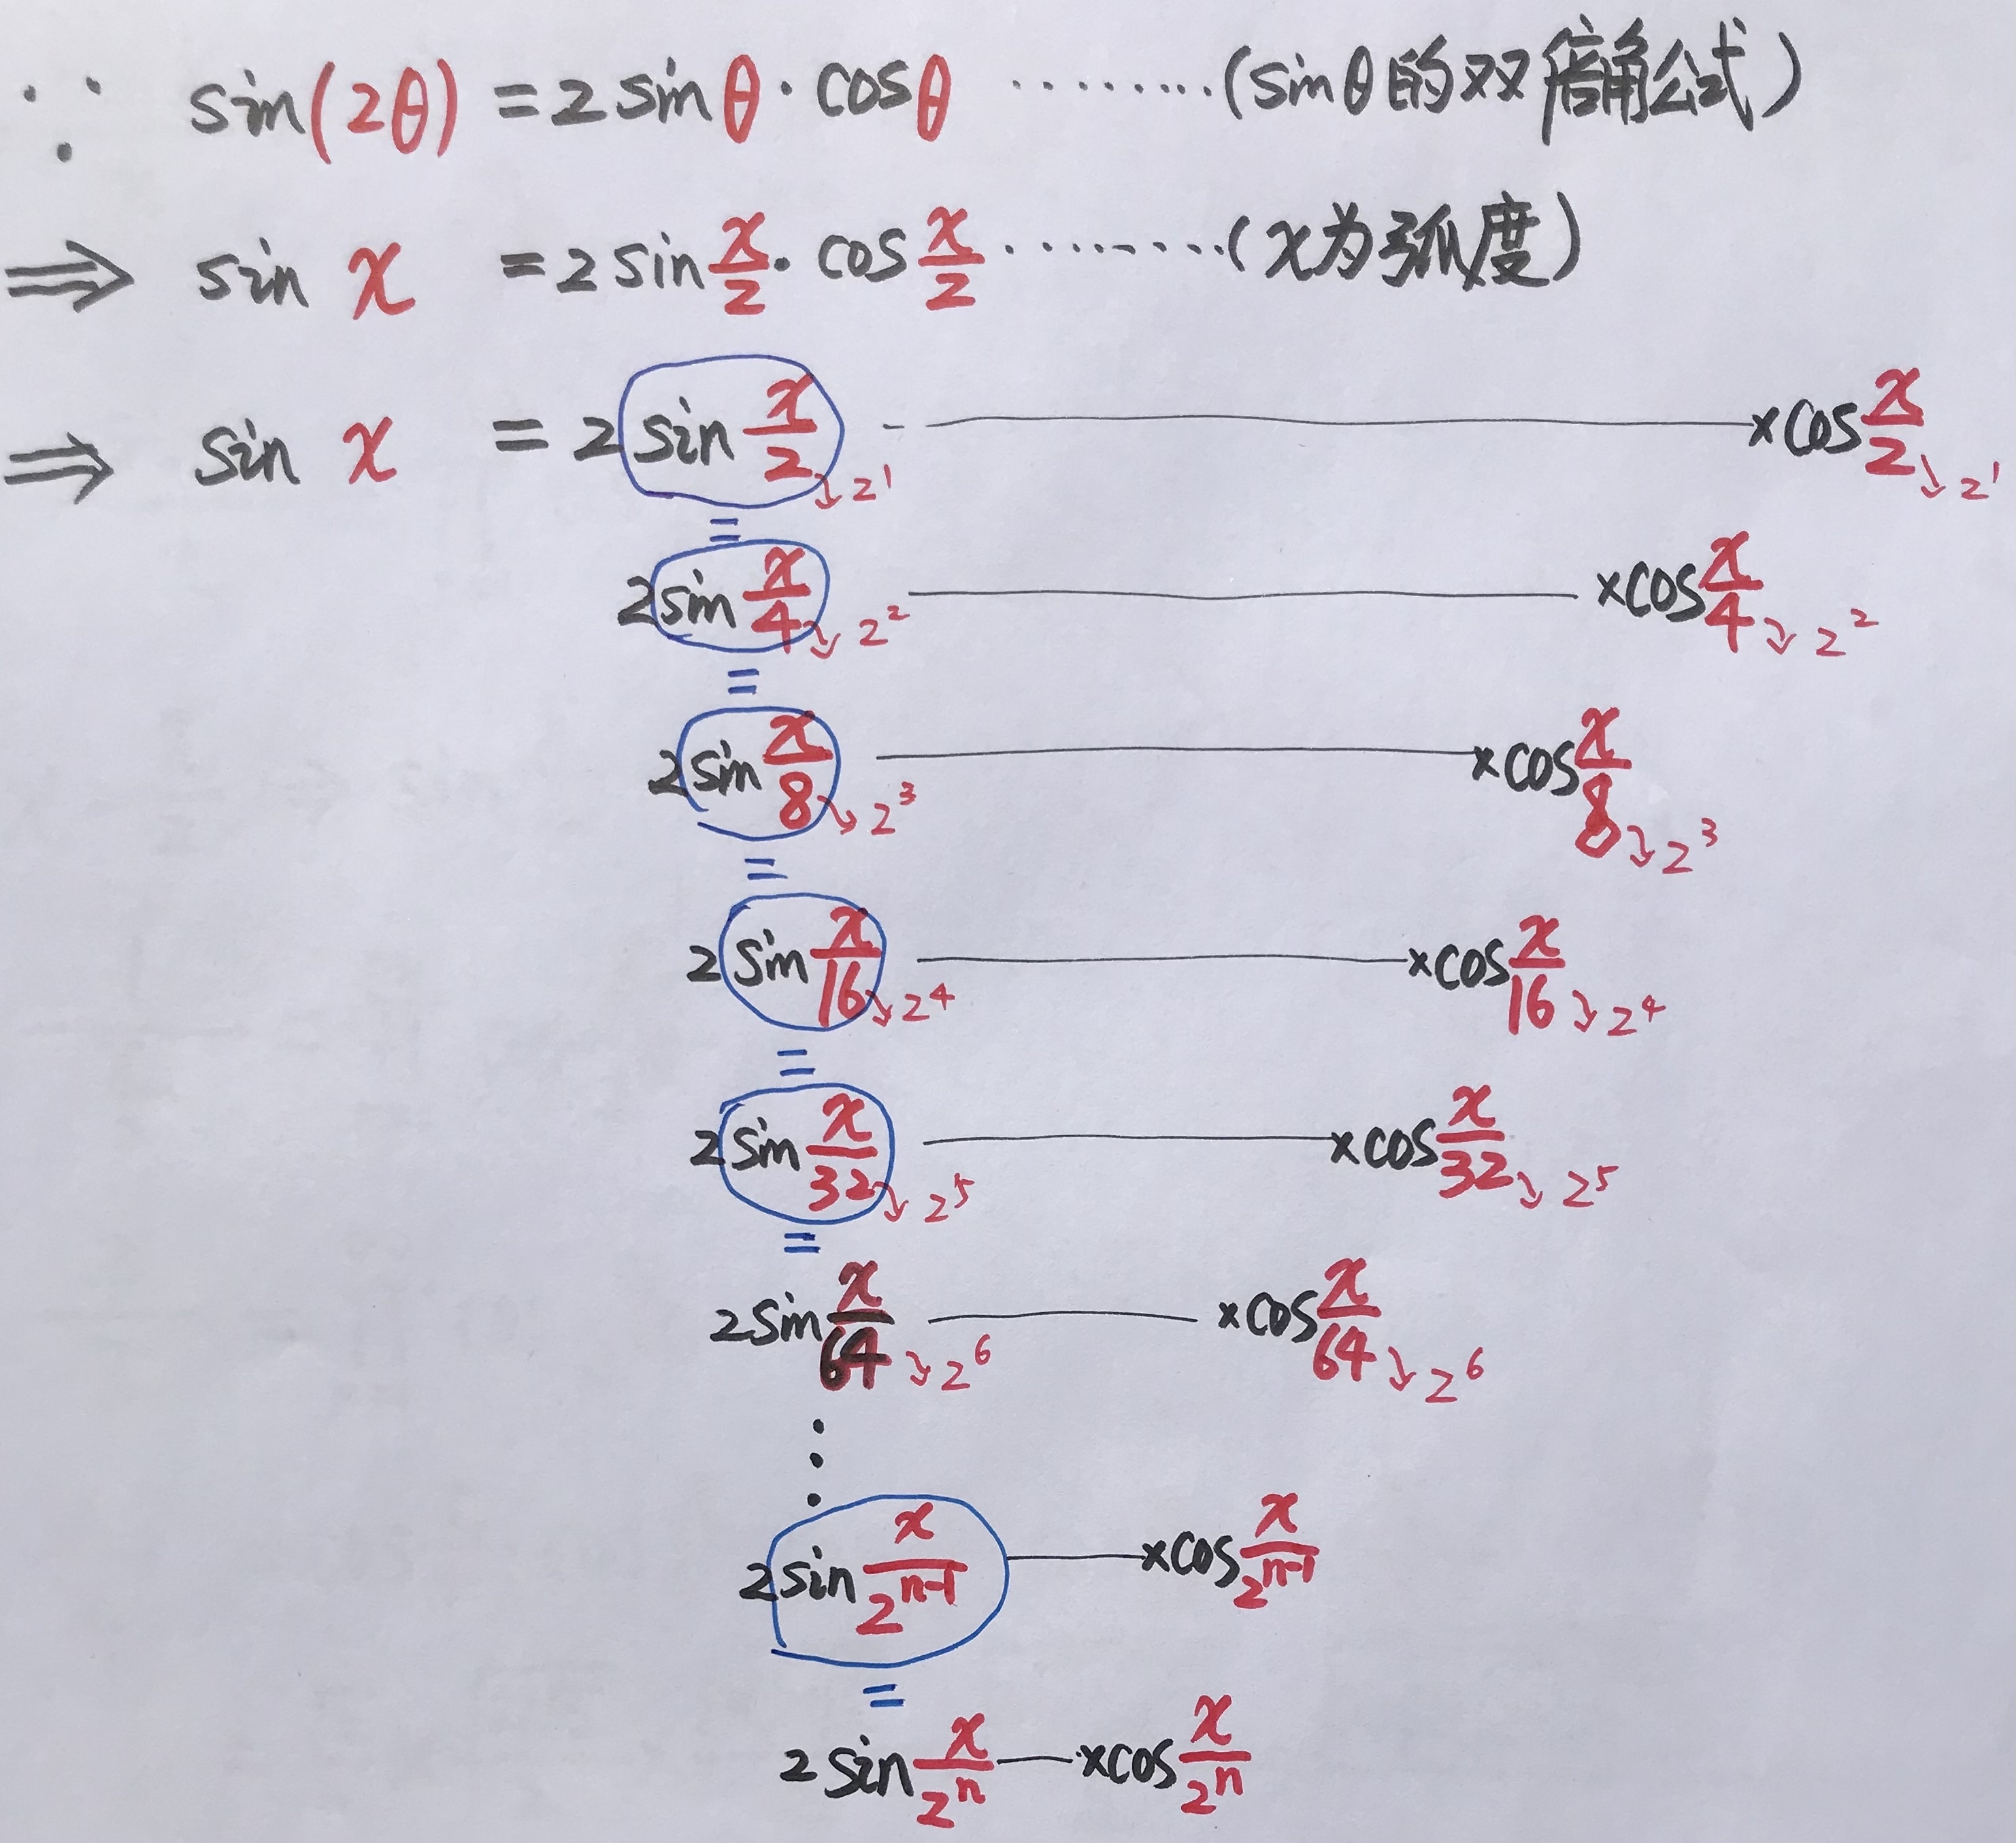 ∵ sin(2θ) = 2 sinθ · cosθ ········· (sinθ的双倍角公式)
⇒ sin x = 2 sin x/2 · cos x/2 ········· (x为弧度)
⇒ sin x = 2 sin x/2 ↘ 2¹ —— ×cos x/2 ↘ 2¹
=
2 sin x/4 ↘ 2² —— ×cos x/4 ↘ 2²
=
2 sin x/8 ↘ 2³ —— ×cos x/8 ↘ 2³
=
2 sin x/16 ↘ 2⁴ —— ×cos x/16 ↘ 2⁴
=
2 sin x/32 ↘ 2⁵ —— ×cos x/32 ↘ 2⁵
=
2 sin x/64 ↘ 2⁶ —— ×cos x/64 ↘ 2⁶
⋮
2 sin x/2ⁿ⁻¹ —— ×cos x/2ⁿ⁻¹
=
2 sin x/2ⁿ —— ×cos x/2ⁿ